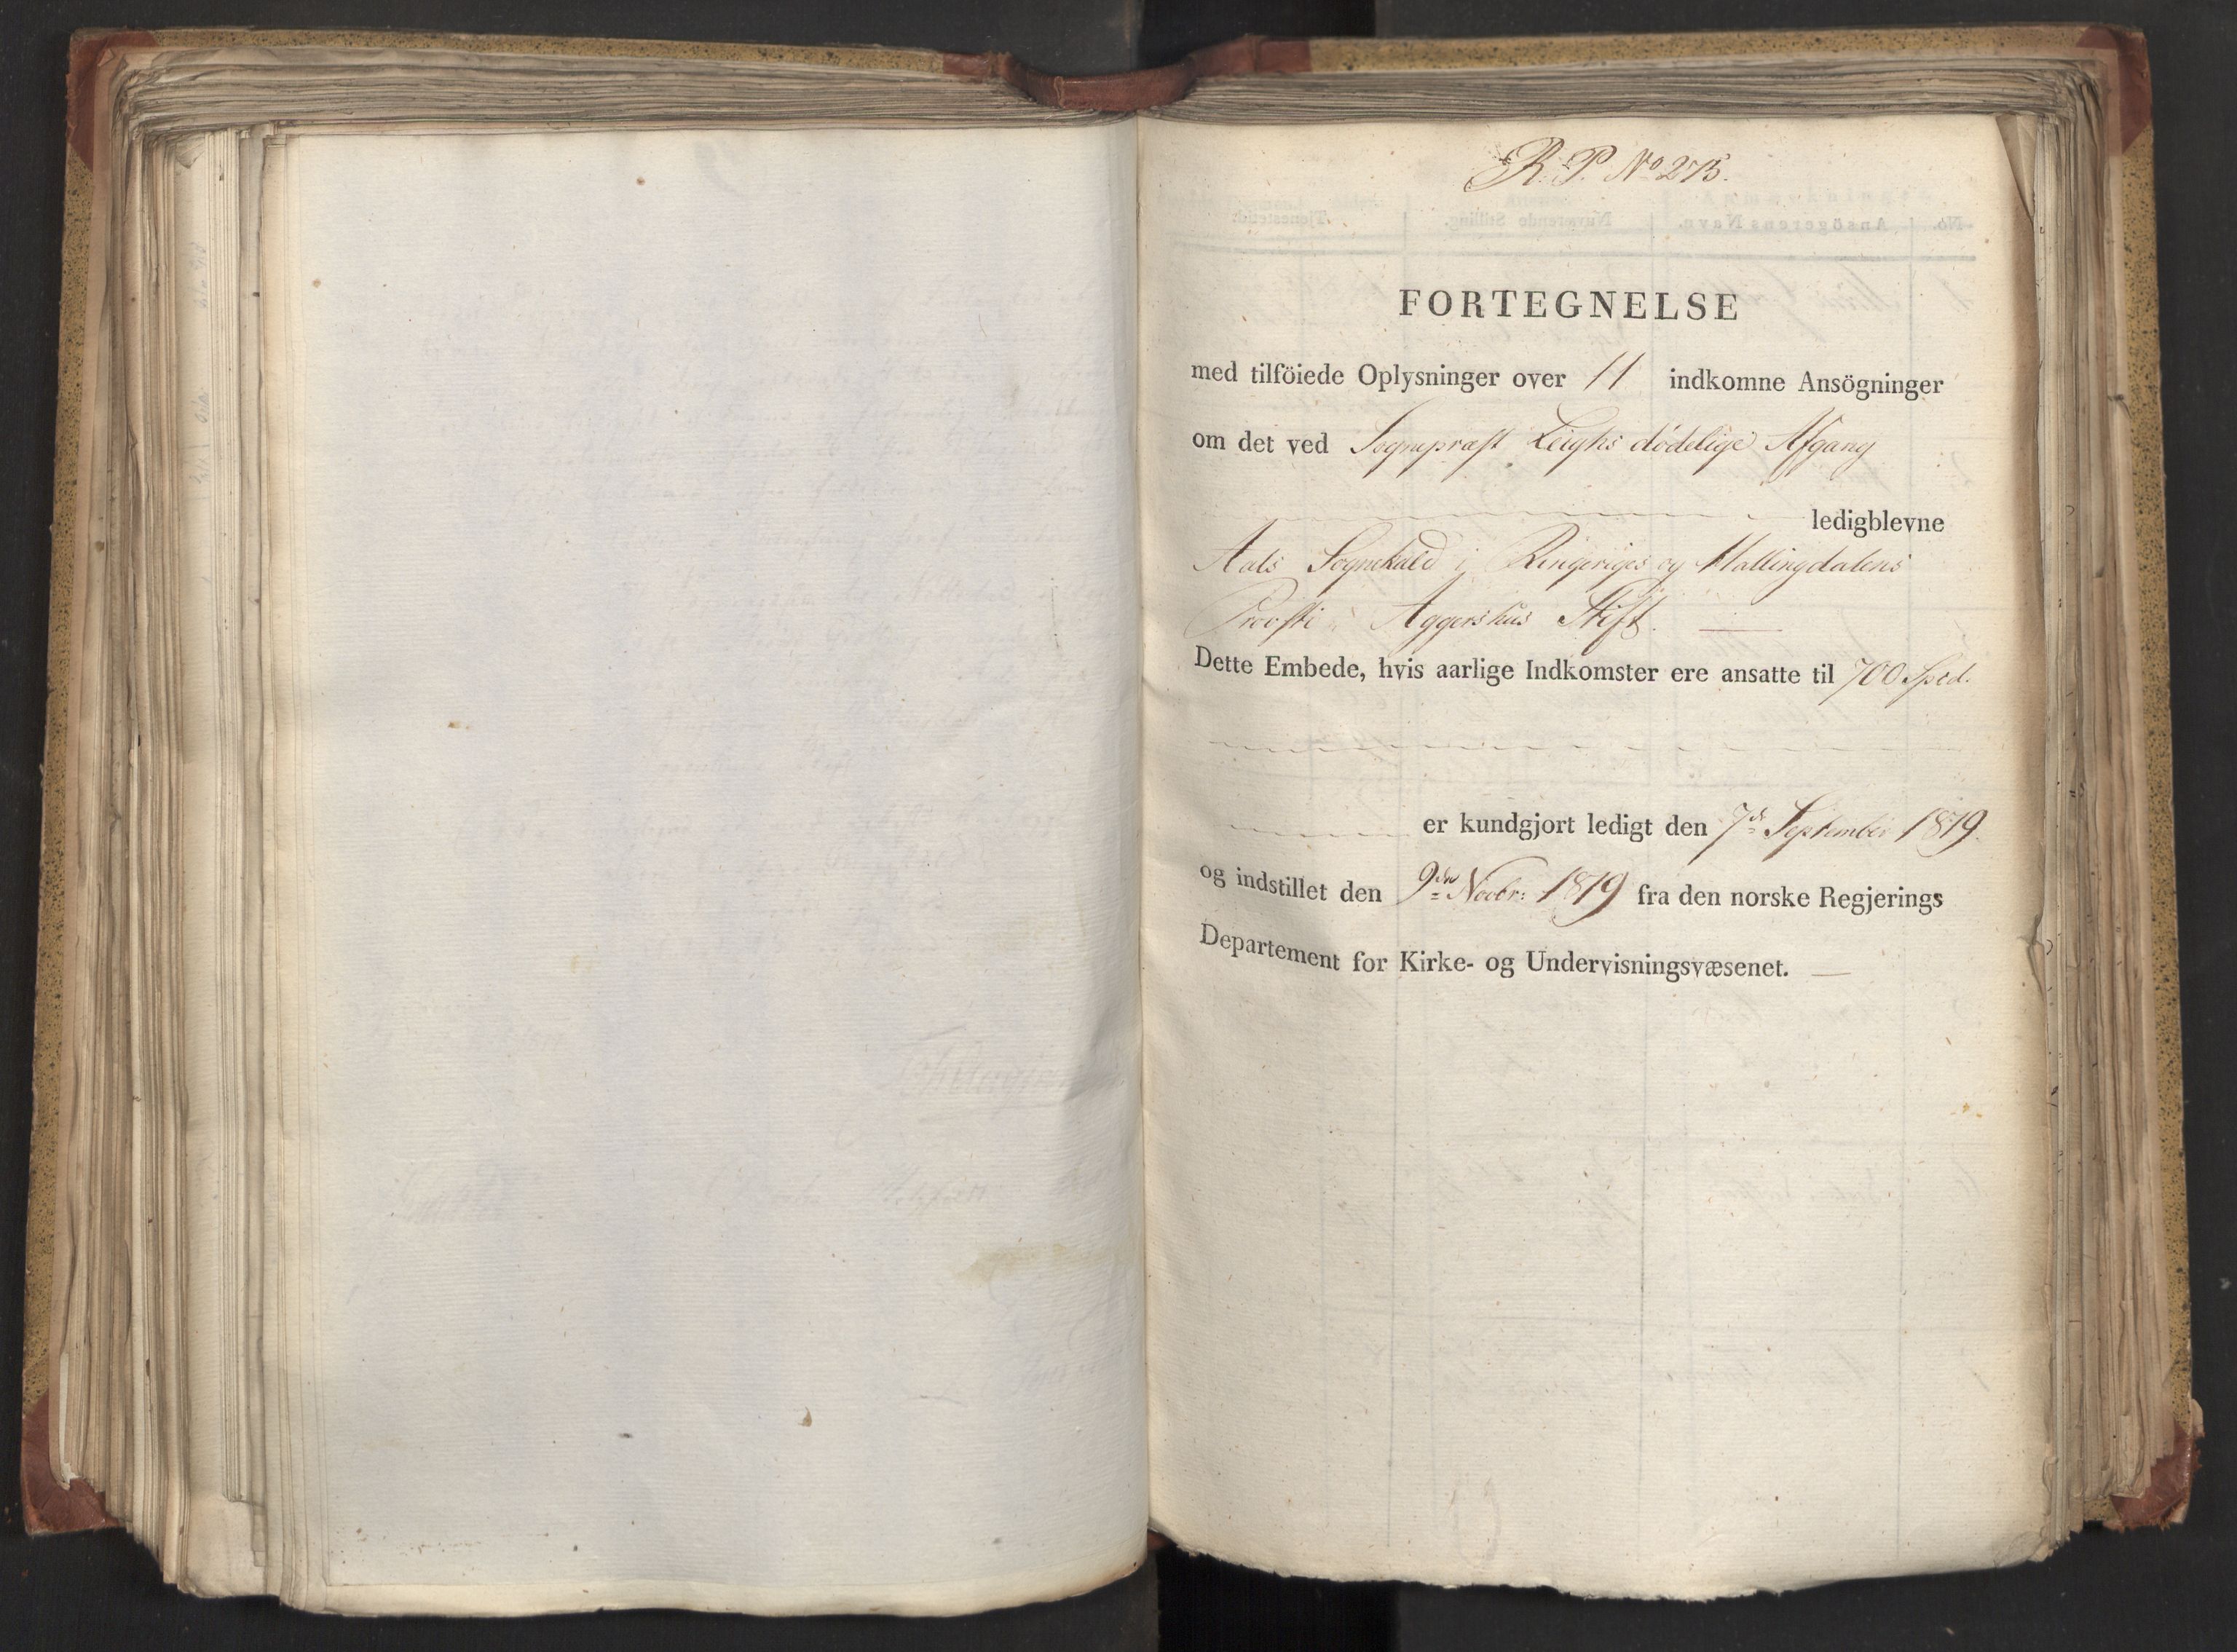 R. P. No 275.
FORTEGNELSE
med tilföiede Oplysninger over 11 indkomne Ansögninger
om det ved Sognepræst Leighs dødelige Afgang
ledigblevne
Aals Sognekald i Ringeriges og Hallingdalens
Provsti i Aggershus Stift.
Dette Embede, hvis aarlige Indkomster ere ansatte til 700 Spd.
er kundgjort ledigt den 7de September 1819.
og indstillet den 9de Novbr: 1819 fra den norske Regjerings
Departement for Kirke- og Undervisningsvæsenet.